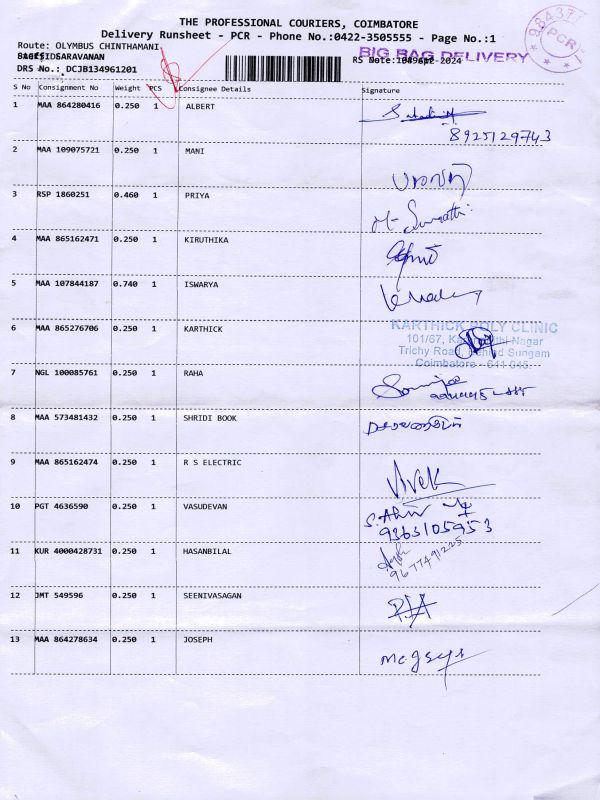 THE PROFESSIONAL COURIERS, COIMBATORE
Delivery Runsheet - PCR - Phone No.:0422-3505555 - Page No.:1
Route: OLYMBUS CHINTHAMANI
SARAVANAN
BIG BAG DELIVERY
DRS No.: DCJB134961201
PCR
S No Consignment No Weight PCS Consignee Details Signature
1 MAA 864280416 0.250 1 ALBERT
8925129743
2 MAA 109075721 0.250 1 MANI
3 RSP 1860251 0.460 1 PRIYA
4 MAA 865162471 0.250 1 KIRUTHIKA
5 MAA 107844187 0.740 1 ISWARYA
6 MAA 865276706 0.250 1 KARTHICK
KARTHICK POLY CLINIC
101/67, Nagar
Trichy Road, Behind Sungam
Coimbatore - 641 045
7 NGL 100085761 0.250 1 RAHA
8 MAA 573481432 0.250 1 SHRIDI BOOK
9 MAA 865162474 0.250 1 R S ELECTRIC
Vivek
10 PGT 4636590 0.250 1 VASUDEVAN
9363105953
11 KUR 4000428731 0.250 1 HASANBILAL
9677491225
12 JMT 549596 0.250 1 SEENIVASAGAN
13 MAA 864278634 0.250 1 JOSEPH